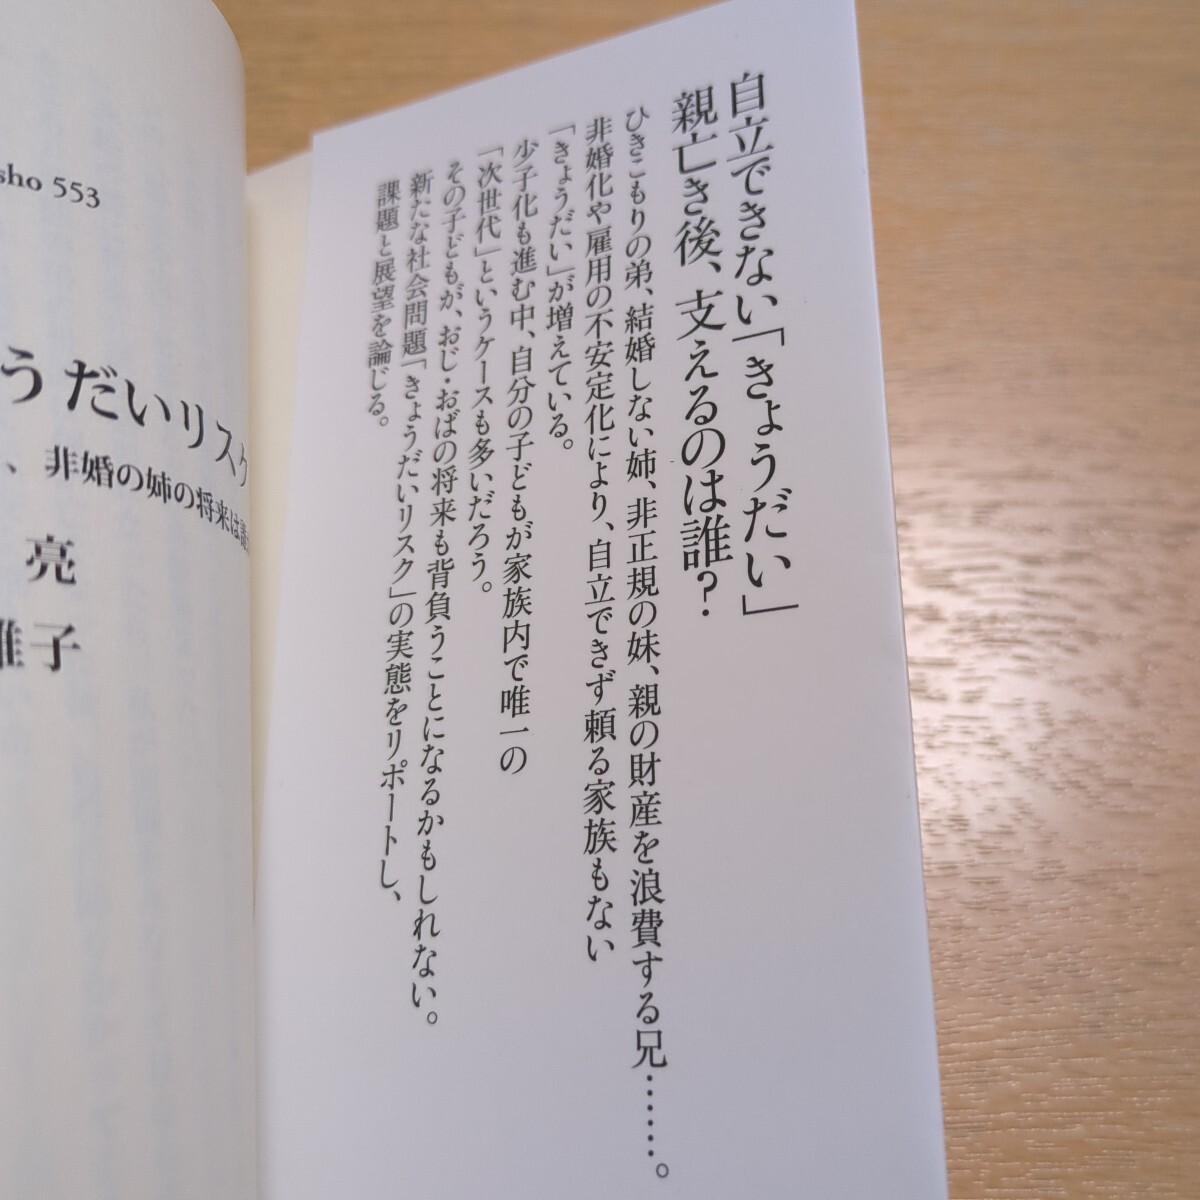 自立できない「きょうだい」
親亡き後、支えるのは誰?
ひきこもりの弟、結婚しない姉、非正規の妹、親の財産を浪費する兄……。
非婚化や雇用の不安定化により、自立できず頼る家族もない
「きょうだい」が増えている。
少子化も進む中、自分の子どもが家族内で唯一の
「次世代」というケースも多いだろう。
その子どもが、おじ・おばの将来も背負うことになるかもしれない。
新たな社会問題「きょうだいリスク」の実態をリポートし、
課題と展望を論じる。
sho 553
うだいリスク
、非婚の姉の将来は
亮
子